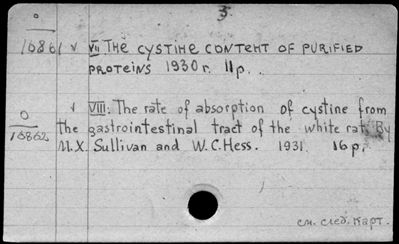 o
3
10861 v VII THE CYSTINE CONTENT OF PURIFIED
PROTEINS 1930 г. 11 p.
v VIII: The rate of absorption of cystine from
O
10862
the gastrointestinal tract of the white rat. By
M.X. Sullivan and W.C. Hess. 1931. 16 p.
см. след. карт.